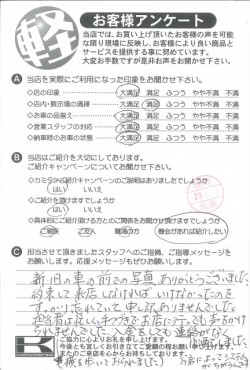 軽
お客様アンケート
当店では、お買い上げ頂いたお客様の声を可能
な限り現場に反映し、お客様により良い商品と
サービスを提供する事に努めています。
大変お手数ですが是非お声をお聞かせ下さい。
A 当店を実際にご利用になった印象をお聞かせ下さい。
◇店の印象 大満足 満足 ふつう やや不満 不満
◇店内・展示場の清掃 大満足 満足 ふつう やや不満 不満
◇お車の品揃え 大満足 満足 ふつう やや不満 不満
◇営業スタッフの対応 大満足 満足 ふつう やや不満 不満
◇納車時のお車の状態 大満足 満足 ふつう やや不満 不満
B 当店はご紹介を大切にしております。
ご紹介キャンペーンについてお聞かせ下さい。
ご紹介キャンペーンのご説明はありましたでしょうか
はい いいえ
◇ご紹介を頂けますでしょうか
はい いいえ
◇具体的にご紹介頂ける方とのご関係をお聞かせ頂けますでしょうか
ご親族 ご友人 職場の方 機会があれば紹介したい
C 担当させて頂きましたスタッフへのご指摘、ご指導メッセージを
お願いします。応援メッセージもぜひお願いします。
新・旧の車の前での写真、ありがとうございました。
約束して来店しなければいけなかったのを
すっかり忘れていて申し訳ありませんでした。
担当者は忙しい
られませんでした。入金をしても連絡がなく
K
ご協力に心よりお礼を申し上げます。
今後とも宜しくお引き立てご愛顧の程お願い申し上げます。
またのご来店を心からお待ちしております。